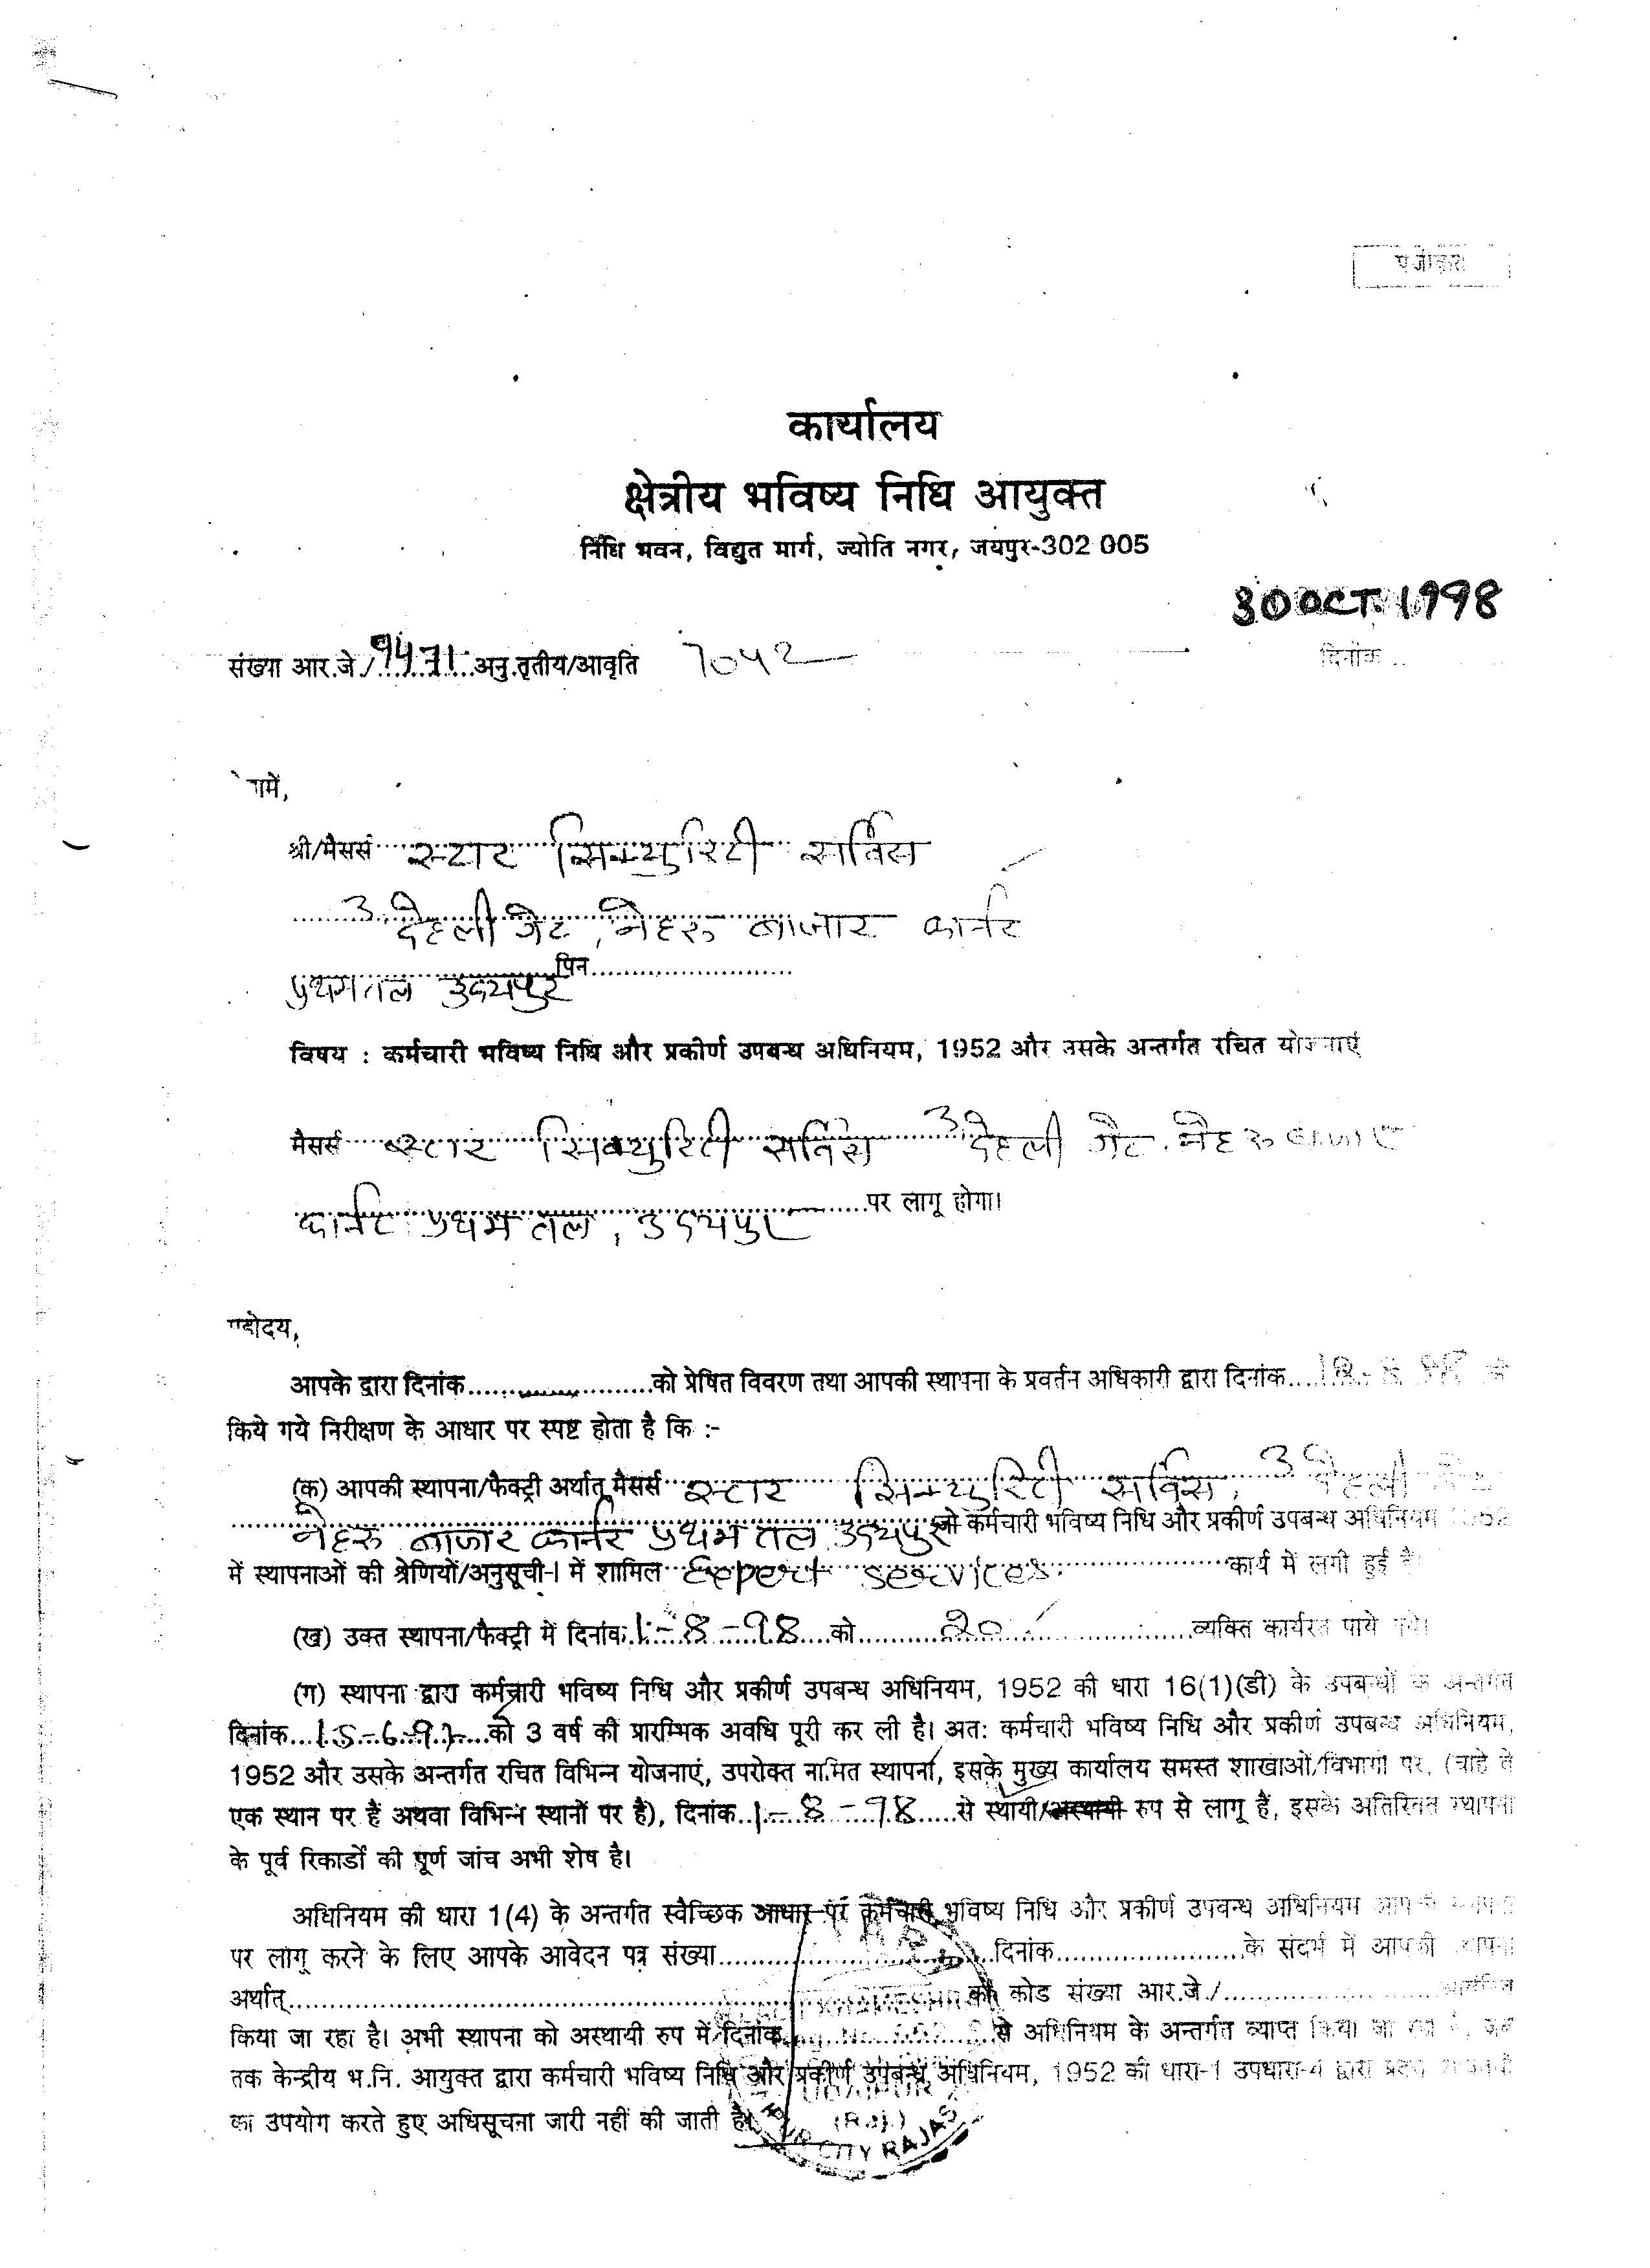 पंजीकृत
कार्यालय
क्षेत्रीय भविष्य निधि आयुक्त
निधि भवन, विद्युत मार्ग, ज्योति नगर, जयपुर-302 005
30 OCT. 1998
संख्या आर.जे./9471 अनु.तृतीय/आवृति 7042
दिनांक
श्री/मैसर्स स्टार सिक्युरिटी सर्विस
3 देहली गेट, नेहरू बाजार कार्नर
पिन
प्रथमतल उदयपुर
विषय : कर्मचारी भविष्य निधि और प्रकीर्ण उपबन्ध अधिनियम, 1952 और उसके अन्तर्गत रचित योजनाएं
मैसर्स स्टार सिक्युरिटी सर्विस 3 देहली गेट, नेहरू बाजार
कार्नर प्रथम तल, उदयपुर पर लागू होगा।
महोदय,
आपके द्वारा दिनांक को प्रेषित विवरण तथा आपकी स्थापना के प्रवर्तन अधिकारी द्वारा दिनांक
किये गये निरीक्षण के आधार पर स्पष्ट होता है कि :-
(क) आपकी स्थापना/फैक्ट्री अर्थात् मैसर्स स्टार सिक्युरिटी सर्विस, 3 देहली
नेहरू बाजार कार्नर प्रथम तल उदयपुर जो कर्मचारी भविष्य निधि और प्रकीर्ण उपबन्ध अधिनियम 1952
में स्थापनाओं की श्रेणियों/अनुसूची-I में शामिल Expert services कार्य में लगी हुई है।
(ख) उक्त स्थापना/फैक्ट्री में दिनांक 1-8-98 को 20 व्यक्ति कार्यरत पाये गये।
(ग) स्थापना द्वारा कर्मचारी भविष्य निधि और प्रकीर्ण उपबन्ध अधिनियम, 1952 की धारा 16(1)(डी) के उपबन्धों के अन्तर्गत
दिनांक 15-6-97 को 3 वर्ष की प्रारम्भिक अवधि पूरी कर ली है। अत: कर्मचारी भविष्य निधि और प्रकीर्ण उपबन्ध अधिनियम,
1952 और उसके अन्तर्गत रचित विभिन्न योजनाएं, उपरोक्त नामित स्थापना, इसके मुख्य कार्यालय समस्त शाखाओं/विभागों पर, (चाहे वे
एक स्थान पर हैं अथवा विभिन्न स्थानों पर है), दिनांक 1-8-98 से स्थायी/अस्थायी रुप से लागू हैं, इसके अतिरिक्त स्थापना
के पूर्व रिकार्डों की पूर्ण जांच अभी शेष है।
अधिनियम की धारा 1(4) के अन्तर्गत स्वैच्छिक आधार पर कर्मचारी भविष्य निधि और प्रकीर्ण उपबन्ध अधिनियम आपकी स्थापना
पर लागू करने के लिए आपके आवेदन पत्र संख्या दिनांक के संदर्भ में आपकी स्थापना
अर्थात् को कोड संख्या आर.जे./ आवंटित
किया जा रहा है। अभी स्थापना को अस्थायी रुप में दिनांक से अधिनियम के अन्तर्गत व्याप्त किया जा रहा है, जब
तक केन्द्रीय भ.नि. आयुक्त द्वारा कर्मचारी भविष्य निधि और प्रकीर्ण उपबन्ध अधिनियम, 1952 की धारा-1 उपधारा-4 द्वारा प्रदत्त
का उपयोग करते हुए अधिसूचना जारी नहीं की जाती है।
(Raj.)
CITY RAJAS